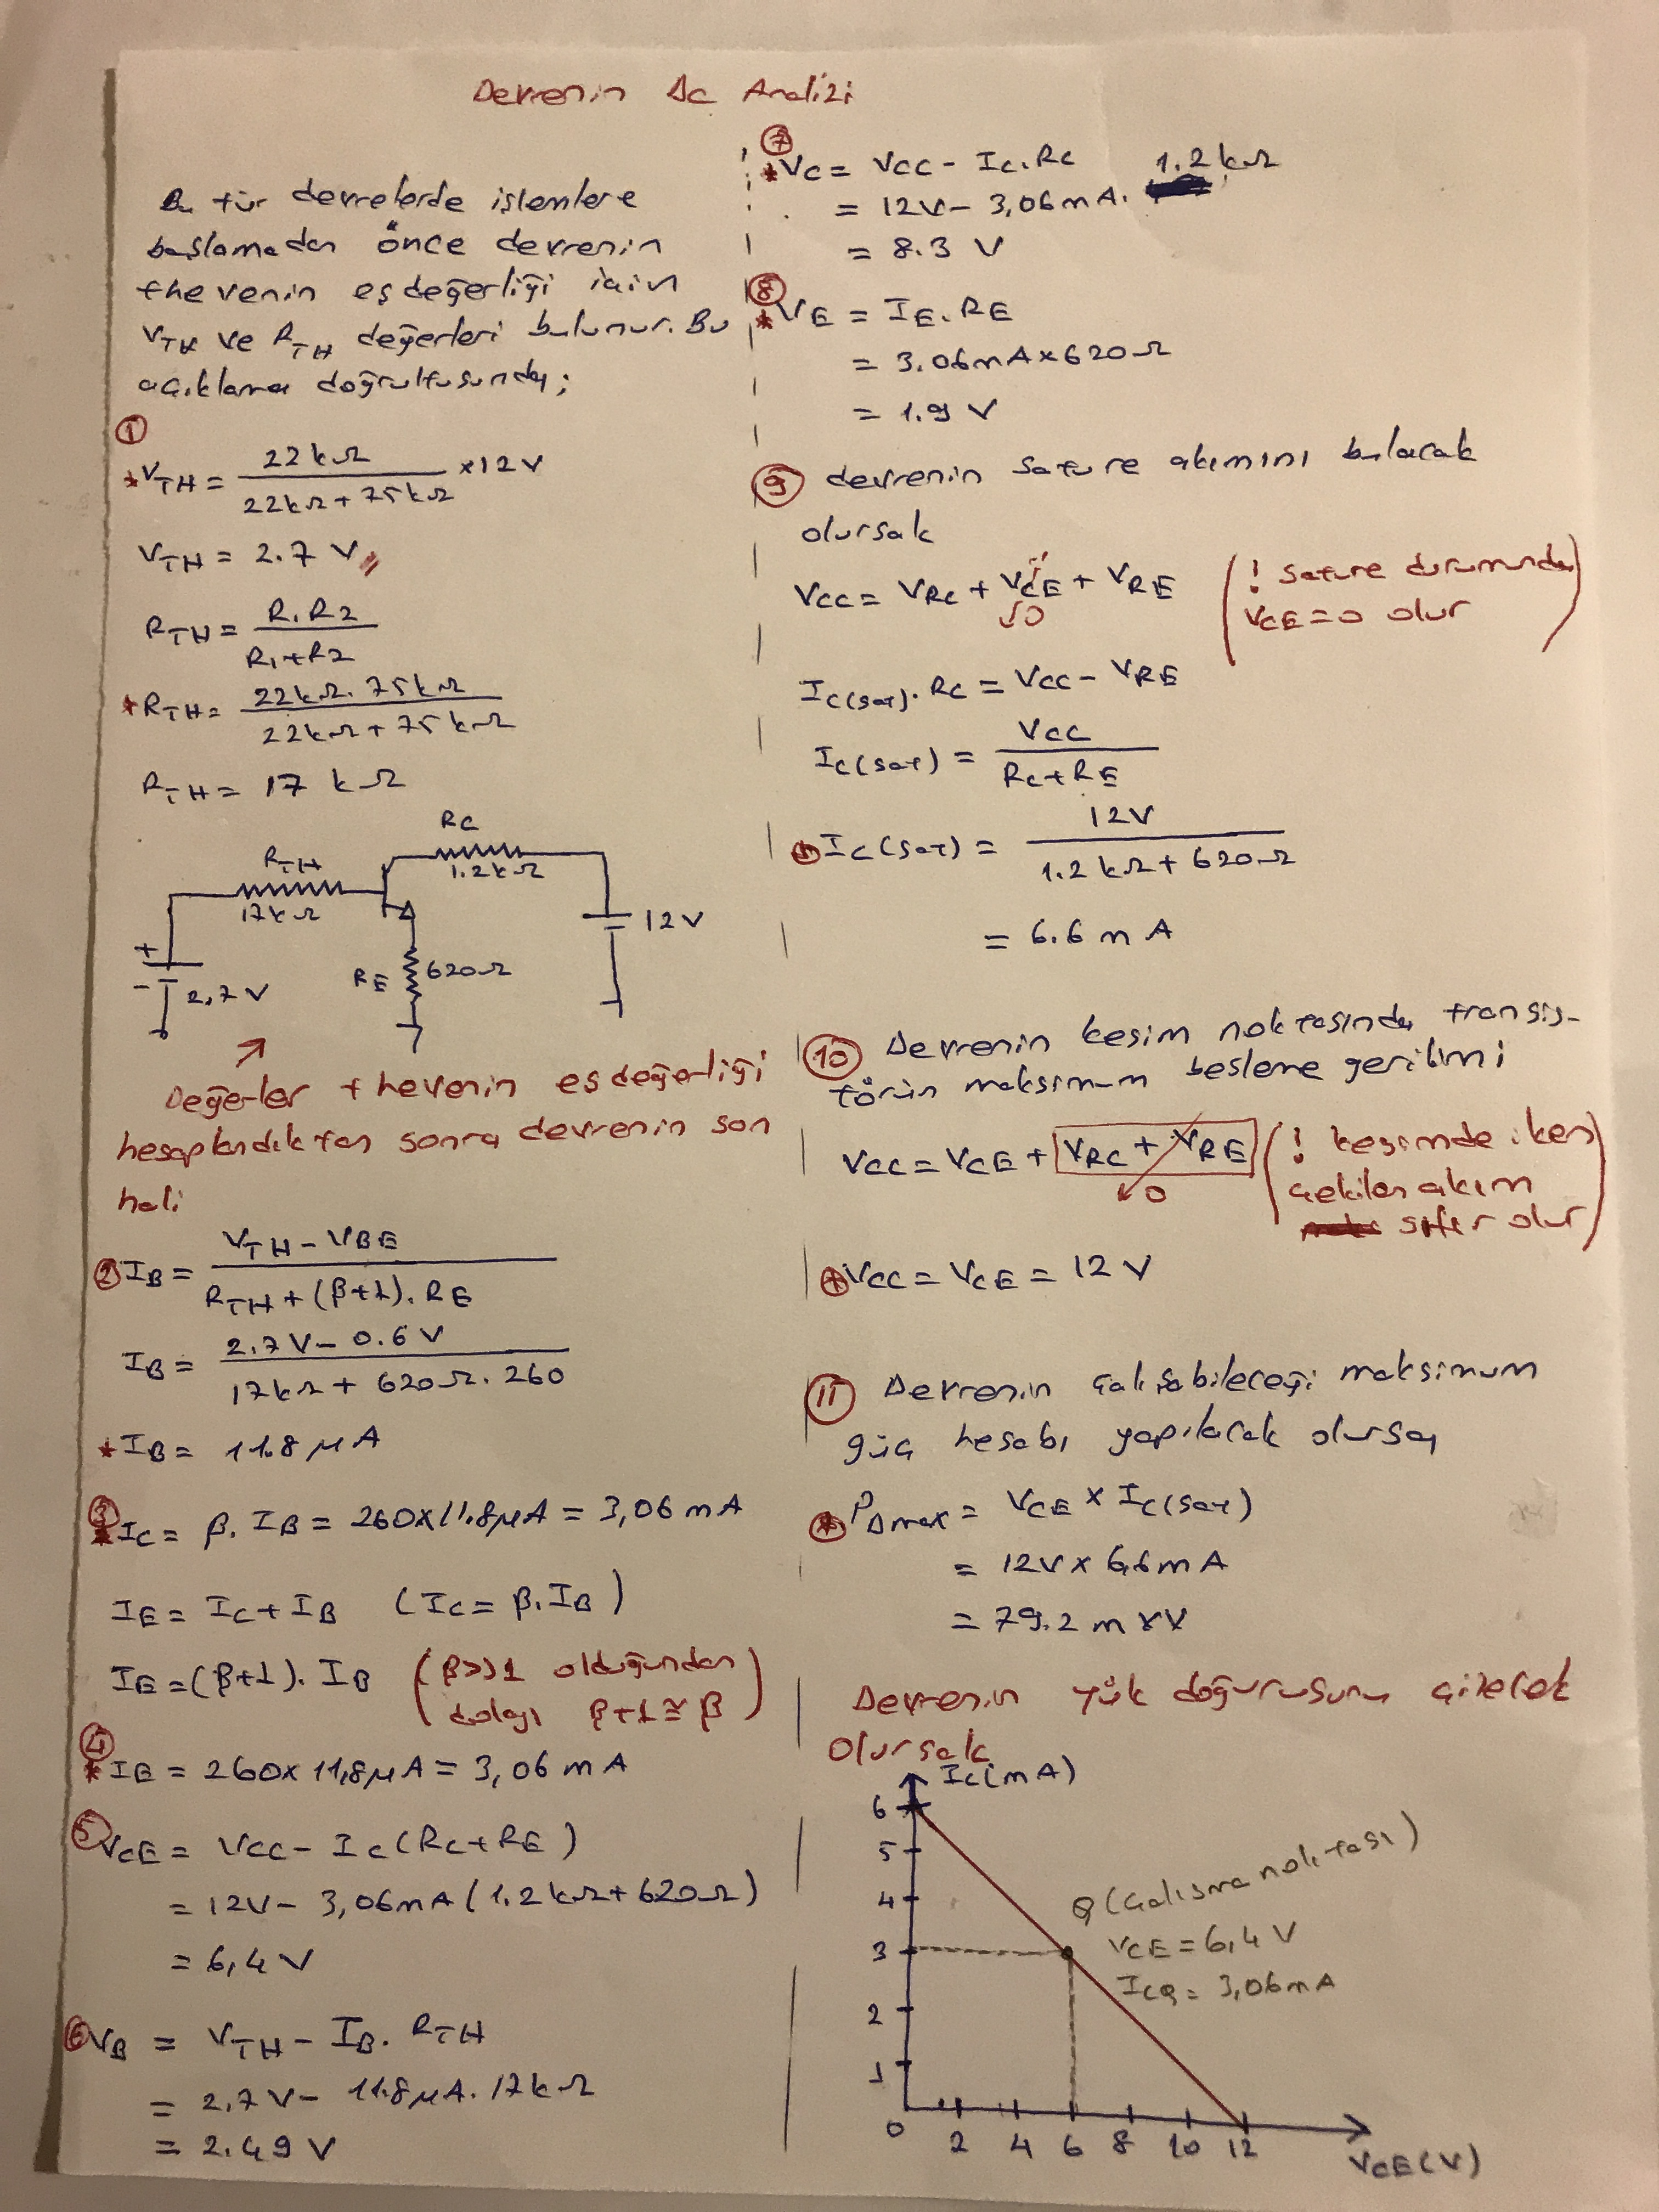 Devrenin Dc Analizi
Bu tür devrelerde işlemlere
başlamadan önce devrenin
thevenin eşdeğerliği için
VTH ve RTH değerleri bulunur. Bu
açıklama doğrultusunda;
①
*VTH = 22kΩ / 22kΩ + 75kΩ x12V
VTH = 2.7 V//
RTH = R1.R2 / R1+R2
*RTH = 22kΩ. 75kΩ / 22kΩ + 75kΩ
RTH = 17 kΩ
RTH
17kΩ
RC
1.2kΩ
12V
RE 620Ω
+
- 2,7V
Değerler thevenin eşdeğerliği
hesaplandıktan sonra devrenin son
hali
② IB = VTH - VBE / RTH + (β+1). RE
IB = 2.7V - 0.6V / 17kΩ + 620Ω. 260
*IB = 11.8 μA
③
*IC = β. IB = 260x11.8μA = 3,06 mA
IE = IC + IB (IC = β.IB)
IE = (β+1). IB (β>>1 olduğundan
dolayı β+1 ≅ β)
④
*IE = 260x 11,8μA = 3,06 mA
⑤ VCE = VCC - IC(RC+RE)
= 12V - 3,06mA (1.2kΩ + 620Ω)
= 6,4V
⑥ VB = VTH - IB. RTH
= 2,7V - 11.8μA. 17kΩ
= 2.49 V
⑦
*VC = VCC - IC.RC
= 12V - 3,06mA. 1.2kΩ
= 8.3 V
⑧
*VE = IE.RE
= 3.06mA x 620Ω
= 1.9 V
⑨ devrenin sature akımını bulacak
olursak
VCC = VRC + VCE + VRE (! Sature durumunda
0 VCE = 0 olur)
IC(sat). RC = VCC - VRE
IC(sat) = VCC / RC+RE
IC(sat) = 12V / 1.2kΩ + 620Ω
= 6.6 mA
⑩ Devrenin kesim noktasında transis-
törün maksimum besleme gerilimi
VCC = VCE + VRC + VRE (! kesimde iken
0 çekilen akım
sıfır olur)
*VCC = VCE = 12V
⑪ Devrenin çalışabileceği maksimum
güç hesabı yapılacak olursa,
*PDmax = VCE x IC(sat)
= 12V x 6.6mA
= 79.2 mW
Devrenin yük doğurusunu çizecek
olursak
IC(mA)
6
5
4
3
2
1
0 2 4 6 8 10 12
VCE(V)
Q (Çalışma noktası)
VCE = 6,4 V
ICQ = 3,06mA